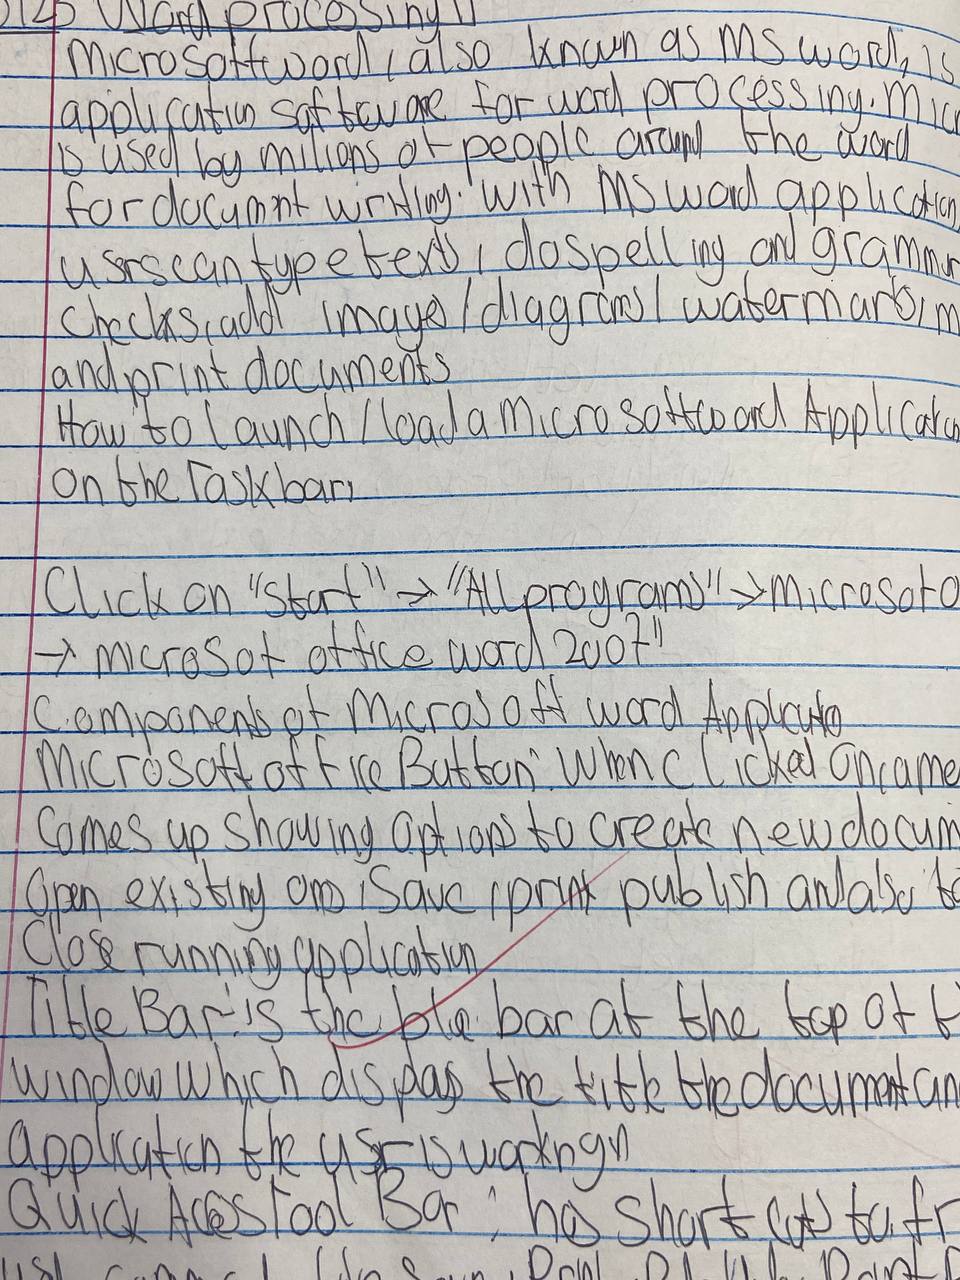 Word procosing
Microsoftword, also known as MS word, is
application software for word processing. Mic
is used by milions of people around the word
for documnt writing. with MS word application
usrscan type texts, do spelling and grammar
checks, add image/diagrams/ watermarks, m
and print documents
How to launch/load a microsoftword Application
on the Taskbar,
Click on "Start" → "All programs" → microsoto
→ microsot office word 2007"
Components of Microsoft word Applicatio
Microsoft office Button: When Clicked on, ame
Comes up showing options to create new docum
Open existing one, Save, print publish and also to
Close running application
Title Bar: is the blue bar at the top of t
window which dispays the title the document an
application the usr is workngn
Quick Access Tool Bar: has short cuts to fr